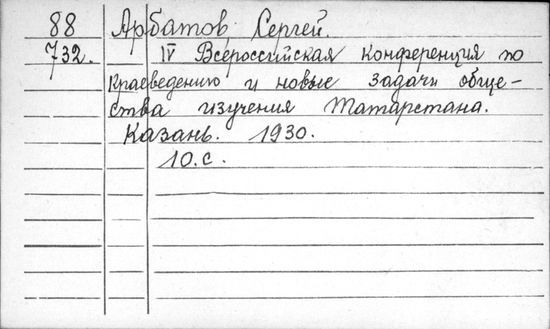 88 Арбатов, Сергей.
732. IV Всероссийская конференция по
краеведению и новые задачи обще-
ства изучения Татарстана.
Казань. 1930.
10.с.